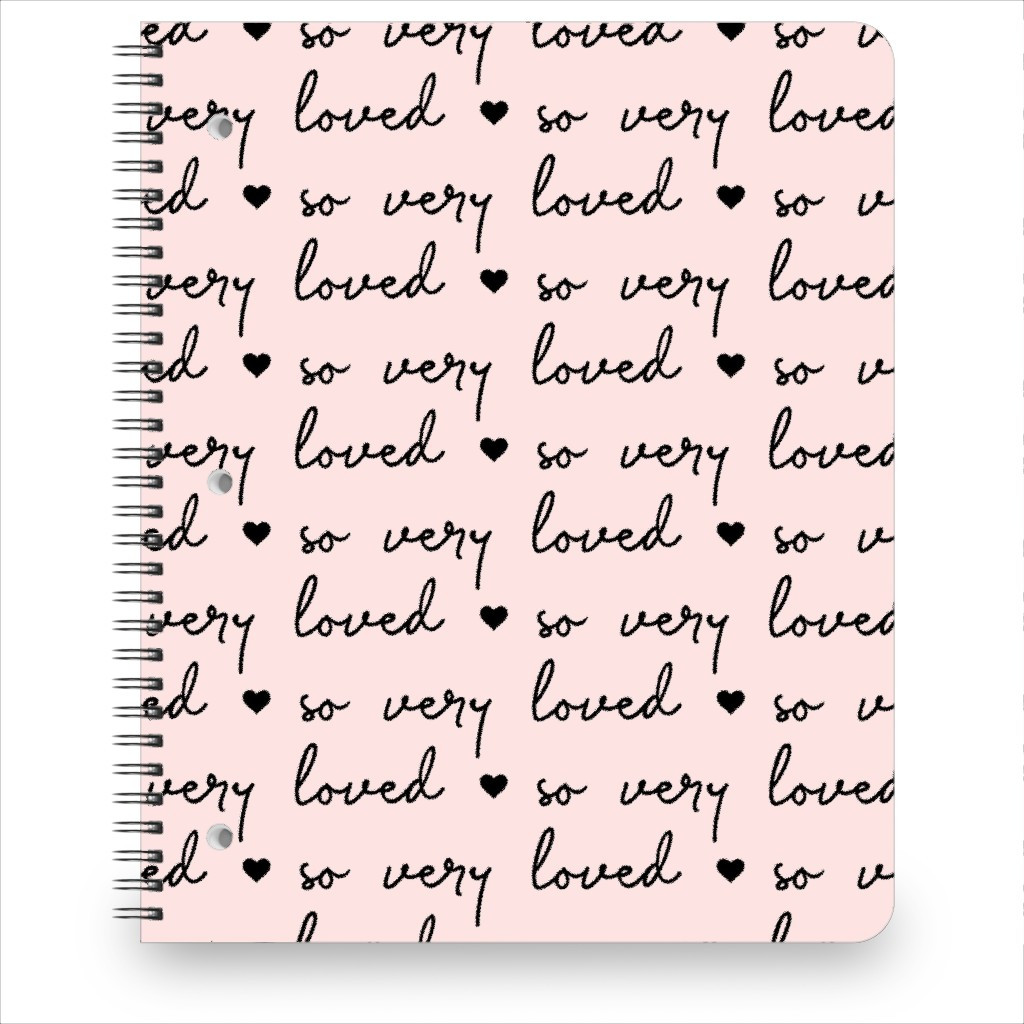 ed ♥ so very loved ♥ so v
very loved ♥ so very loved
ed ♥ so very loved ♥ so v
very loved ♥ so very loved
ed ♥ so very loved ♥ so v
very loved ♥ so very loved
ed ♥ so very loved ♥ so v
very loved ♥ so very loved
ed ♥ so very loved ♥ so v
very loved ♥ so very loved
ed ♥ so very loved ♥ so v